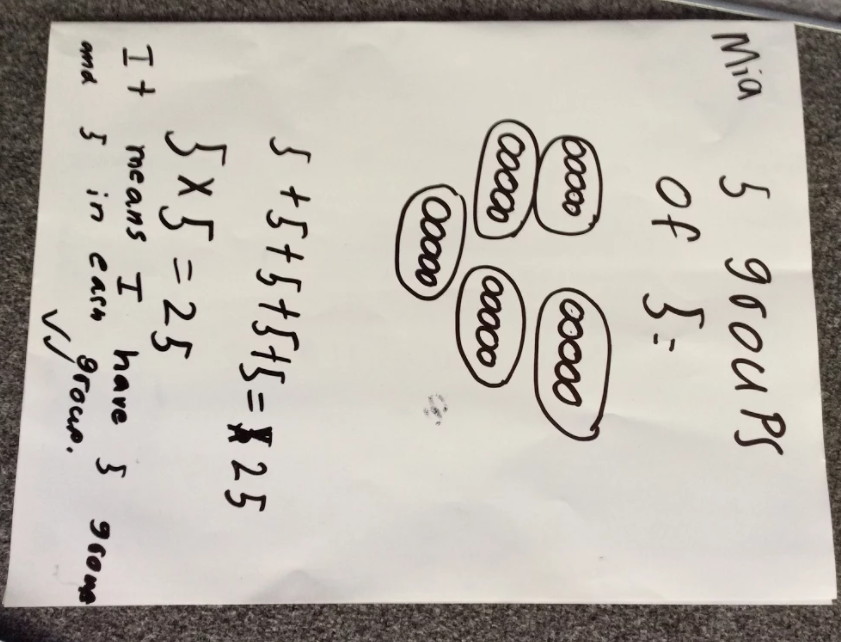 Mia
5 groups
of 5=
5+5+5+5+5= 25
5x5=25
It means I have 5 groups
and 5 in each group.